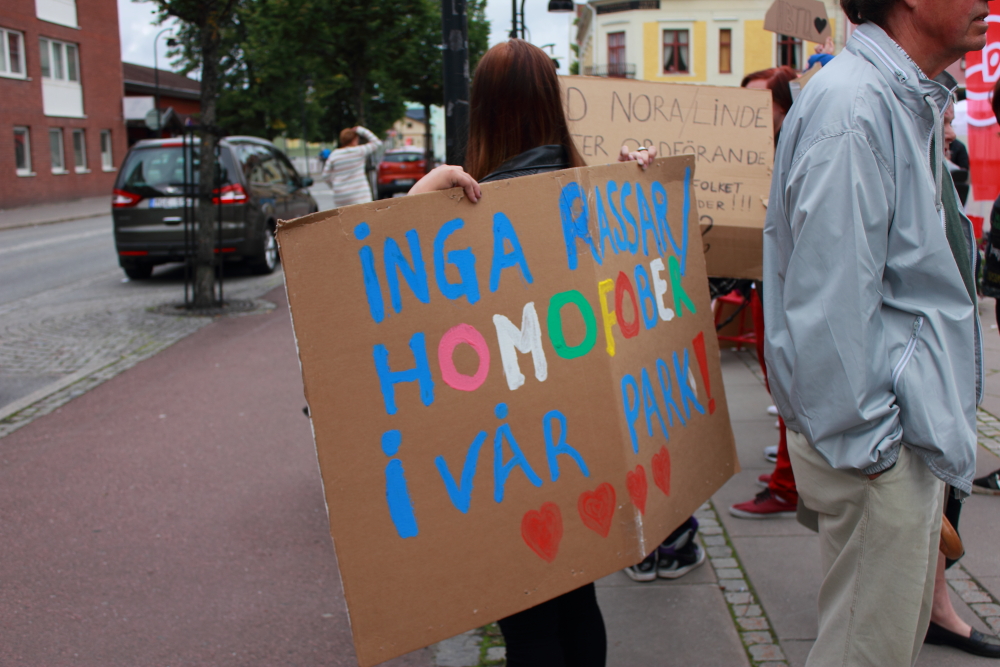 INGA RASSAR/
HOMOFOBER
I VÅR PARK!
D NORA/LINDE
TER ORDFÖRANDE
FOLKET
DER !!!
?